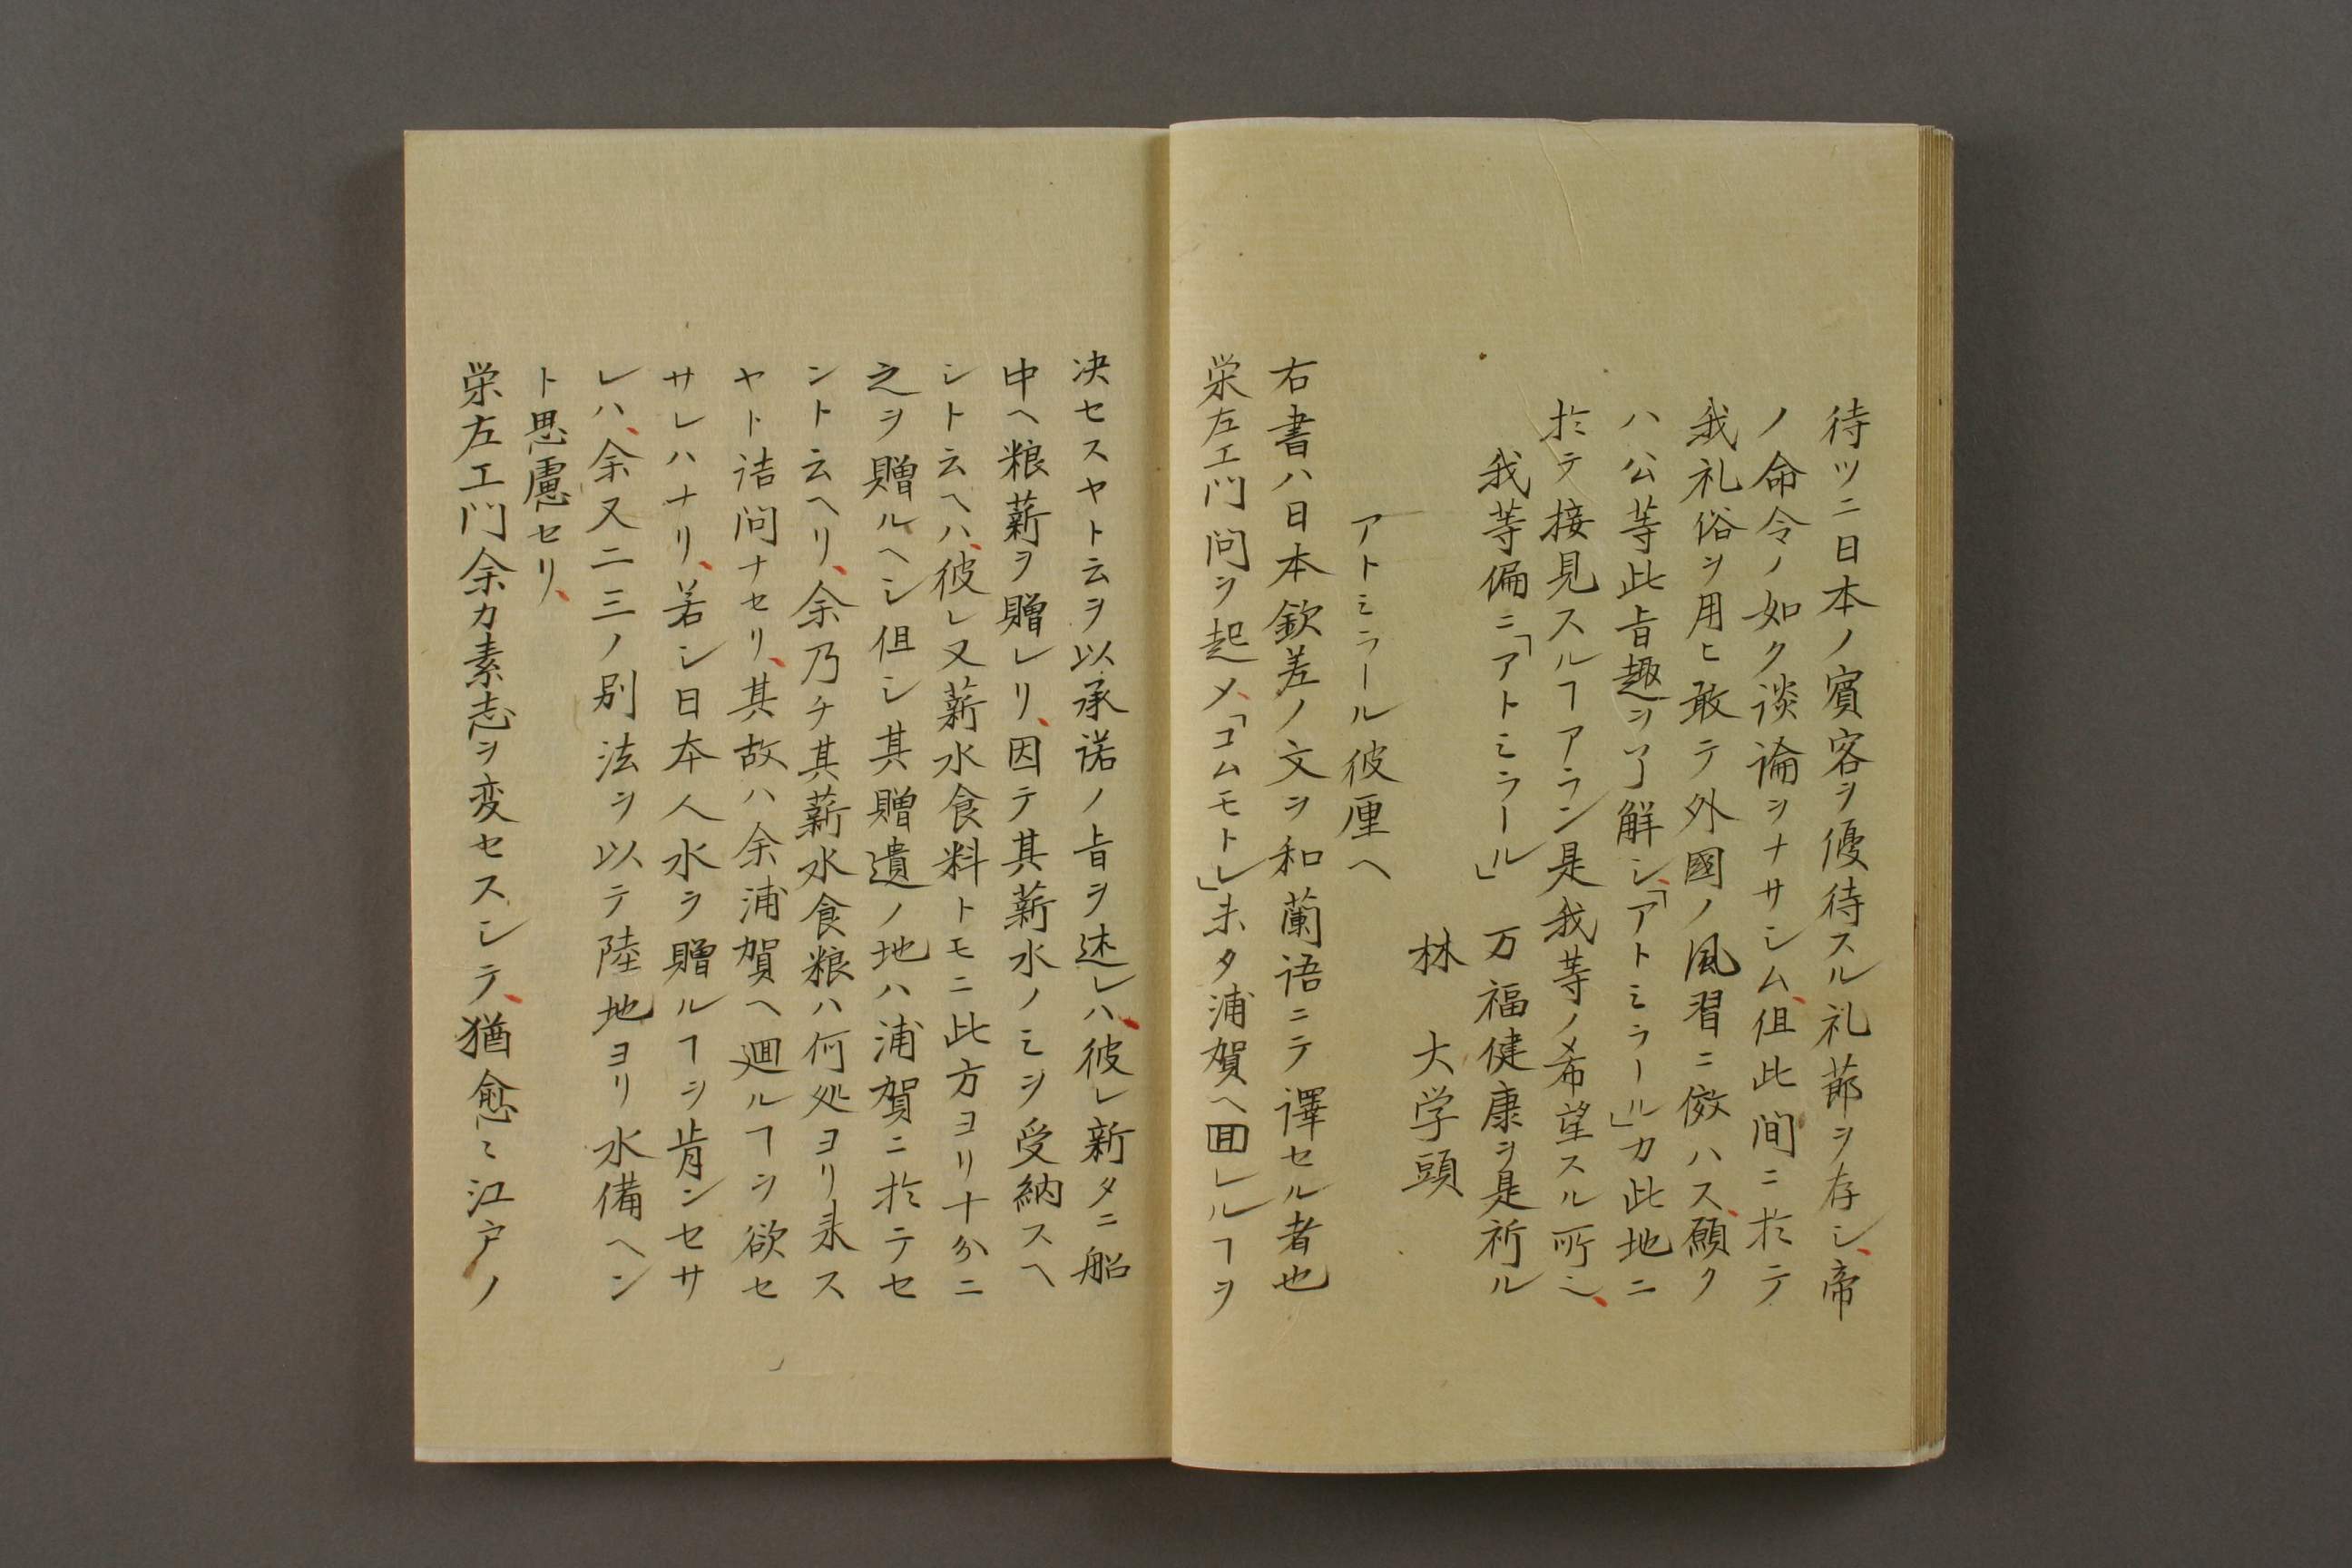 待ツニ日本ノ賓客ヲ優待スル礼莭ヲ存シ、帝
ノ命令ノ如ク談論ヲナサシム、但此間ニ於テ
我礼俗ヲ用ヒ敢テ外國ノ風習ニ倣ハス、願ク
ハ公等此旨趣ヲ了解シ、「アトミラール」カ此地ニ
於テ接見スルヿアラン是我等ノ希望スル所ﾆ、
我等偏ニ「アトミラール」万福健康ヲ是祈ル
林 大学頭
アトミラール彼厘ヘ
右書ハ日本欽差ノ文ヲ和蘭语ニテ譯セル者也
栄左エ門問ヲ起メ、「コムモトレ」未タ浦賀ヘ囬レルヿヲ
决セスヤト云ヲ以承诺ノ旨ヲ述レハ、彼レ新タニ船
中ヘ粮薪ヲ贈レリ、因テ其薪水ノミヲ受納スヘ
シト云ヘハ、彼レ又薪水食料トモニ此方ヨリ十分ニ
之ヲ贈ルヘシ但シ其贈遺ノ地ハ浦賀ニ於テセ
ント云ヘリ、余乃チ其薪水食粮ハ何処ヨリ来ス
ヤト诘问ナセリ、其故ハ余浦賀ヘ廻ルヿヲ欲セ
サレハナリ、若シ日本人水ヲ贈ルヿヲ肯ンセサ
レハ、余又二三ノ別法ヲ以テ陸地ヨリ水備ヘン
ト思慮セリ、
栄左エ門余カ素志ヲ変セスシテ、猶愈ミ江户ノ